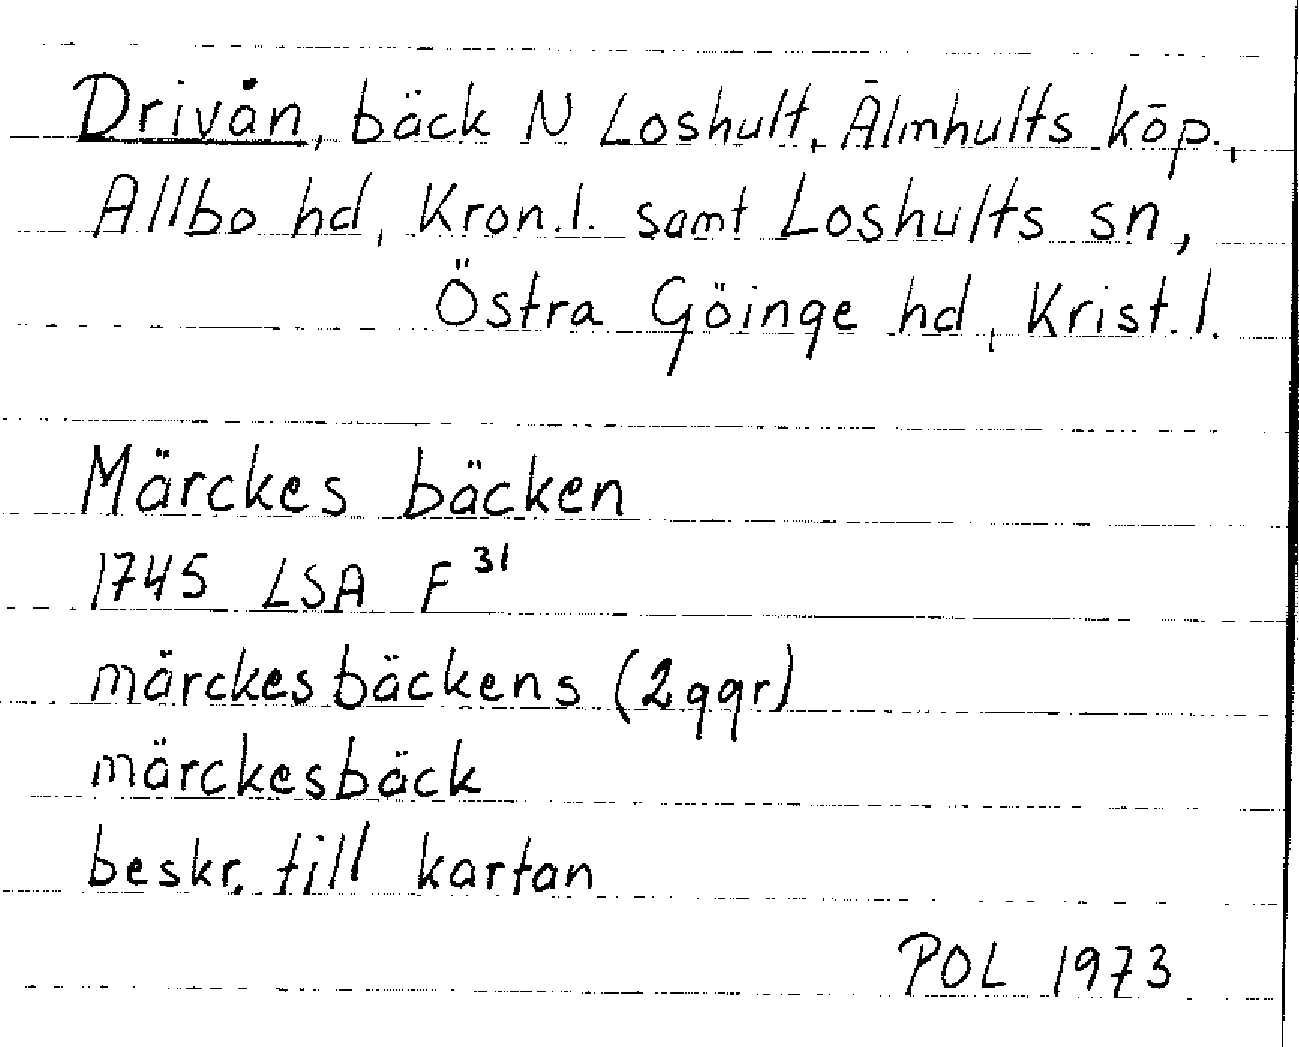 Drivån, bäck N Loshult, Älmhults köp.,
Allbo hd, Kron.l. samt Loshults sn,
Östra Göinge hd, Krist.l.
Märckes bäcken
1745 LSA F 31
märckesbäckens (2ggr)
märckesbäck
beskr. till kartan
POL 1973